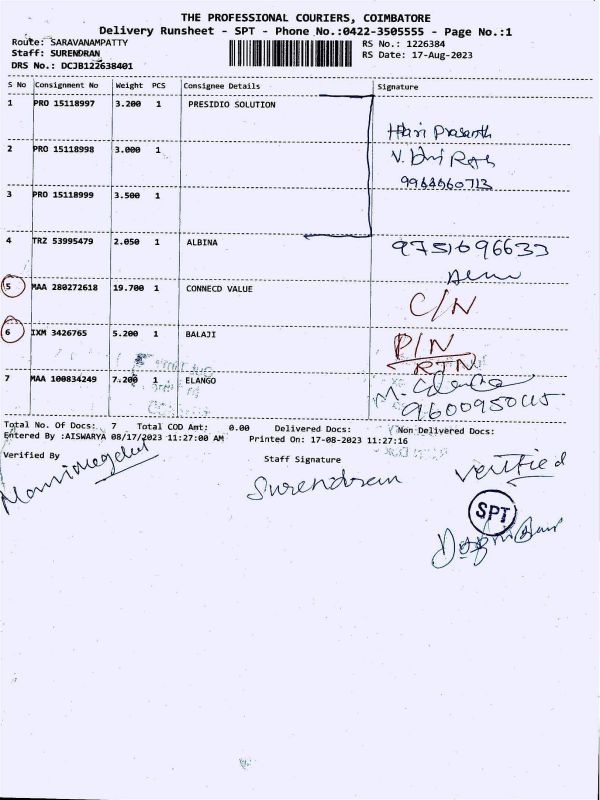 THE PROFESSIONAL COURIERS, COIMBATORE
Delivery Runsheet - SPT - Phone No.:0422-3505555 - Page No.:1
Route: SARAVANAMPATTY RS No.: 1226384
Staff: SURENDRAN RS Date: 17-Aug-2023
DRS No.: DCJB122638401
S No Consignment No Weight PCS Consignee Details Signature
1 PRO 15118997 3.200 1 PRESIDIO SOLUTION
Hari Prasanth
2 PRO 15118998 3.000 1
3 PRO 15118999 3.500 1
4 TRZ 53995479 2.050 1 ALBINA 9751696633
5 MAA 280272618 19.700 1 CONNECD VALUE C/N
6 IXM 3426765 5.200 1 BALAJI P/N
RTN
7 MAA 100834249 7.200 1 ELANGO
Total No. Of Docs: 7 Total COD Amt: 0.00 Delivered Docs: Non Delivered Docs:
Entered By :AISWARYA 08/17/2023 11:27:00 AM Printed On: 17-08-2023 11:27:16
Verified By Staff Signature verified
Surendran
SPT